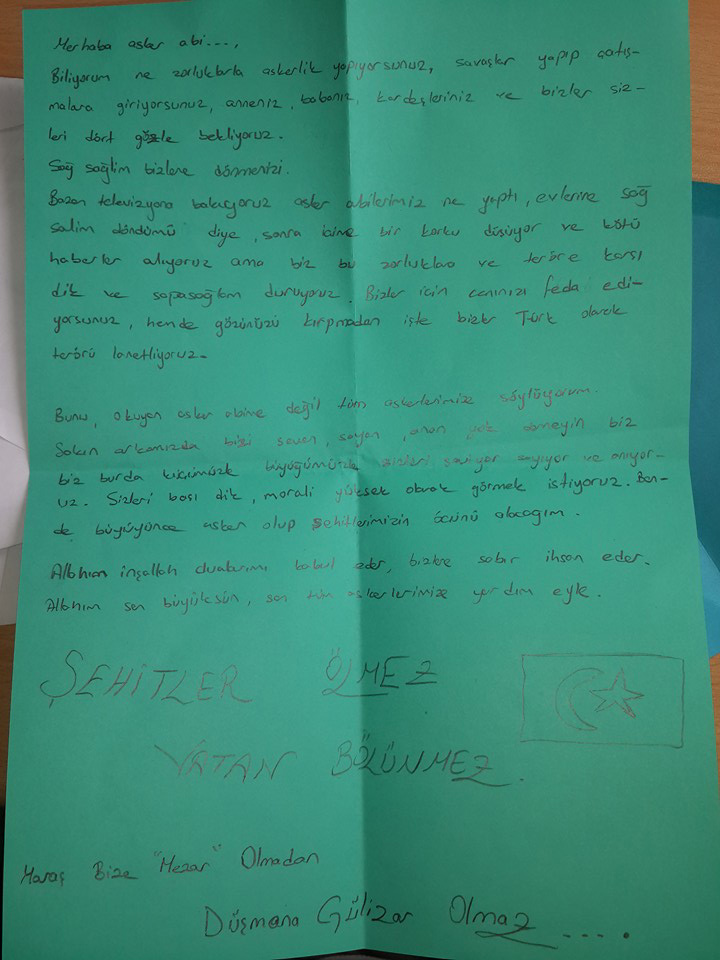 Merhaba asker abi....,
Biliyorum ne zorluklarla askerlik yapıyorsunuz, savaşlar yapıp çatış-
malara giriyorsunuz, anneniz, babanız, kardeşleriniz ve bizler siz-
leri dört gözle bekliyoruz.
Sağ sağlim bizlere dönmenizi.
Bazan televizyona bakıyoruz asker abilerimiz ne yaptı, evlerine sağ
salim döndümü diye, sonra içime bir korku düşüyor ve kötü
haberler alıyoruz ama biz bu zorluklara ve teröre karşı
dik ve sapasağlam duruyoruz. Bizler için canınızı feda edi-
yorsunuz, hemde gözünüzü kırpmadan işte bizler Türk olarak
terörü lanetliyoruz.
Bunu, okuyan asker abime değil tüm askerlerimize söylüyorum.
Sakın arkamızda bizi seven, sayan, anan yok demeyin biz
biz burda küçüğümüzle büyüğümüzle sizleri seviyor sayıyor ve anıyor-
uz. Sizleri başı dik, morali yüksek olarak görmek istiyoruz. Ben-
de büyüyünce asker olup şehitlerimizin öcünü alacağım.
Allahım inşallah dualarımı kabul eder, bizlere sabır ihsan eder.
Allahım sen büyüksün, sen tüm askerlerimize yardım eyle.
ŞEHİTLER ÖLMEZ
VATAN BÖLÜNMEZ.
Maraş Bize "Mezar" Olmadan
Düşmana Gülizar Olmaz.....